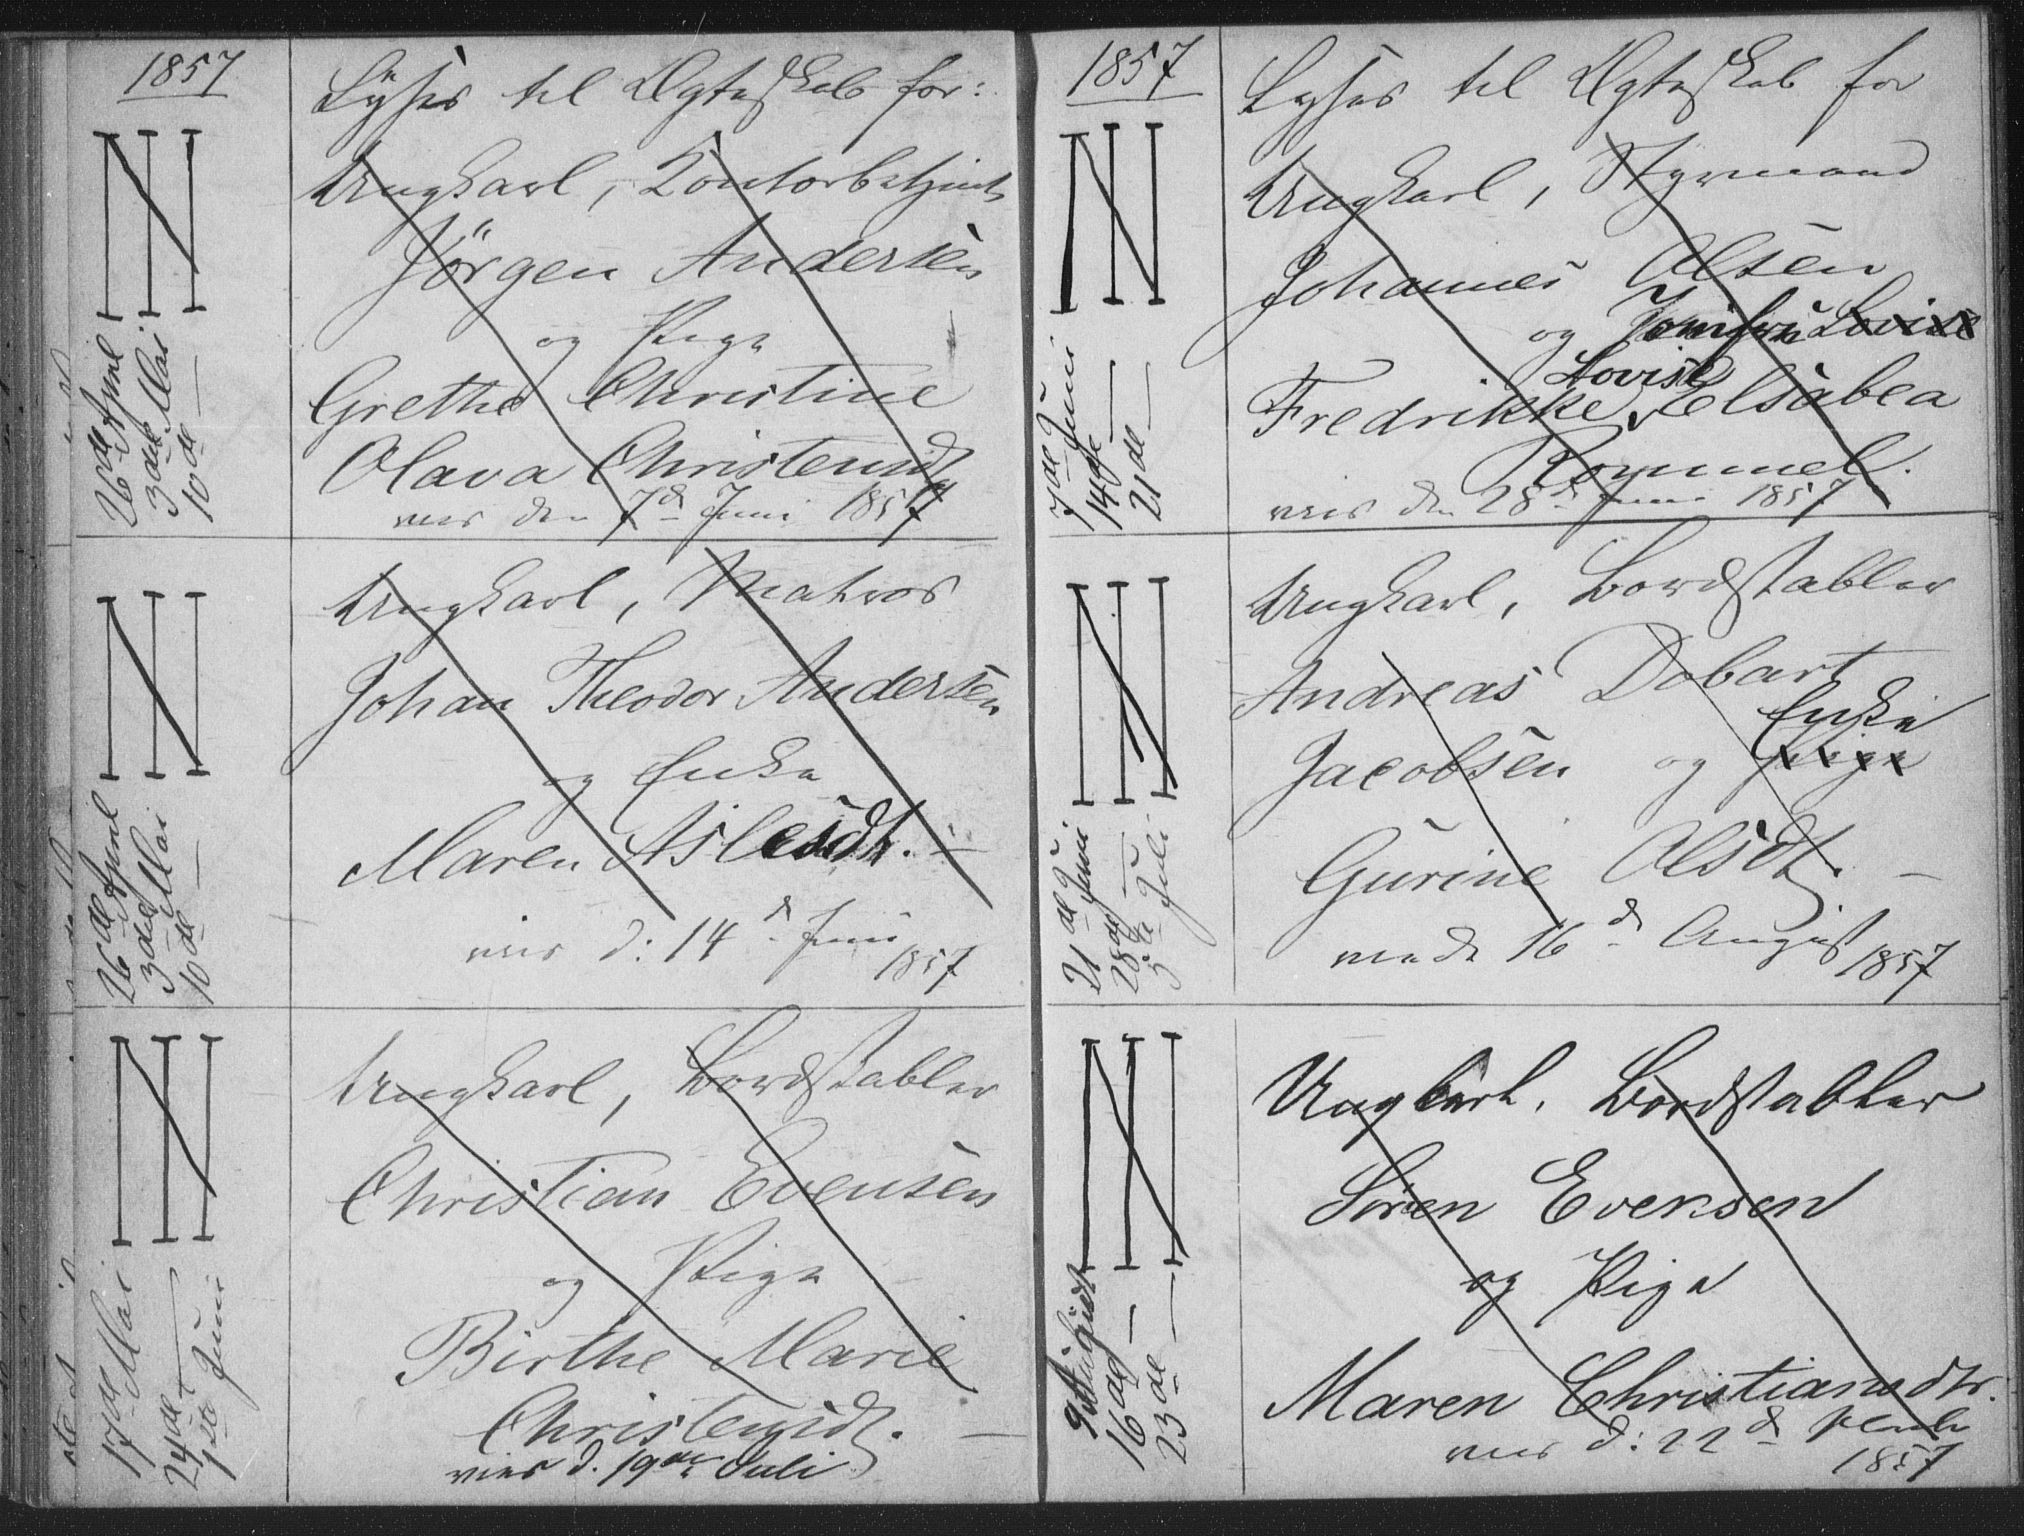 1857
Lyses til Ægteskab for:
26de April
3die Mai
10de —
Ungkarl, Kontorbetjent
Jörgen Andersen
og Pige
Grethe Christine
Olava Christensdt
viet den 7d Juni 1857
26de April
3die Mai
10de —
Ungkarl, Matros
Johan Theodor Andersen
og Enke
Maren Aslesdtr. —
viet d: 14d Juni
1857
17de Mai
24de —
1ste Juni
Ungkarl, Bordstabler
Christian Evensen
og Pige
Birthe Marie
Christensdt. —
viet d. 19de Juli
1857
Lyses til Ægteskab for
7de Juni
14de —
21de —
Ungkarl, Styrmand
Johannes Olsen
og Jomfru Lovise
Lovise
Fredrikke Elsabea
Rommel.
viet den 28d Juni 1857
21de Juni
28de —
5te Juli
Ungkarl, Bordstabler
Andreas Dobart
Enke
Jacobsen og Pige
Gurine Olsdt. —
viede 16d August 1857
9de August
16de —
23de —
Ungkarl, Bordstabler
Sören Evensen
og Pige
Maren Christiansdtr.
viet d: 22d
1857